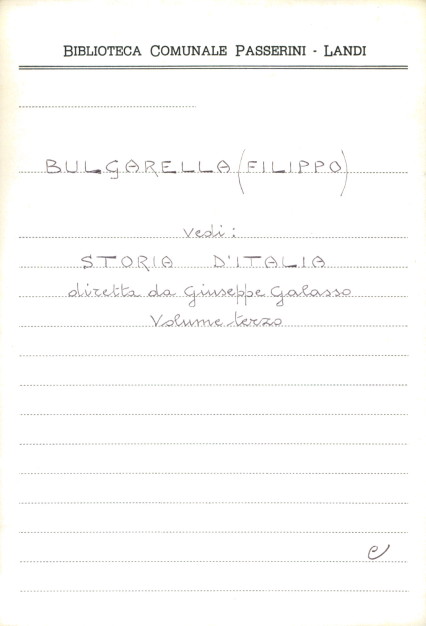 BIBLIOTECA COMUNALE PASSERINI - LANDI
BULGARELLA (FILIPPO)
vedi:
STORIA D'ITALIA
diretta da Giuseppe Galasso
Volume terzo
e